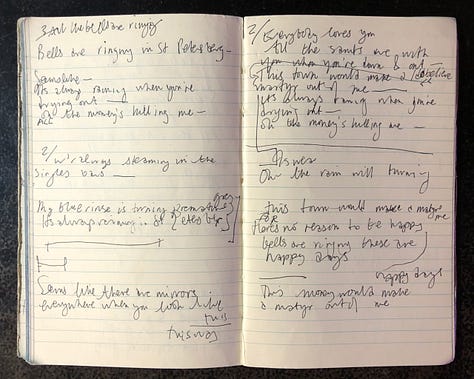 3 All the bells are ringing
Bells are ringing in St Petersberg –
Seems like –
its always raining when you're
drying out
oh the money's killing me –
ALL
2/ we're always steaming in the
singles bars
My blue rinse is turning grey
its always raining in St Petersberg
Seems like there are mirrors
everywhere when you look like
this
this way
2/ Everybody loves you
All the saints are with
you when you're down & out
This town would make a believe
martyr out of me
its always raining when you're
drying out –
oh the money's killing me –
Answer
Oh the rain will turning
this town would make a martyr
me
FOR
Heres no reason to be happy
bells are ringing these are
happy days
happy days
This money would make
a martyr out of me